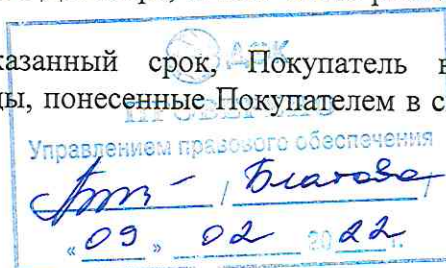 казанный срок, Покупатель в
ды, понесенные Покупателем в с
АСК
ПРОВЕРЕНО
Управлением правового обеспечения
/ Благова /
« 09 » 02 2022 г.